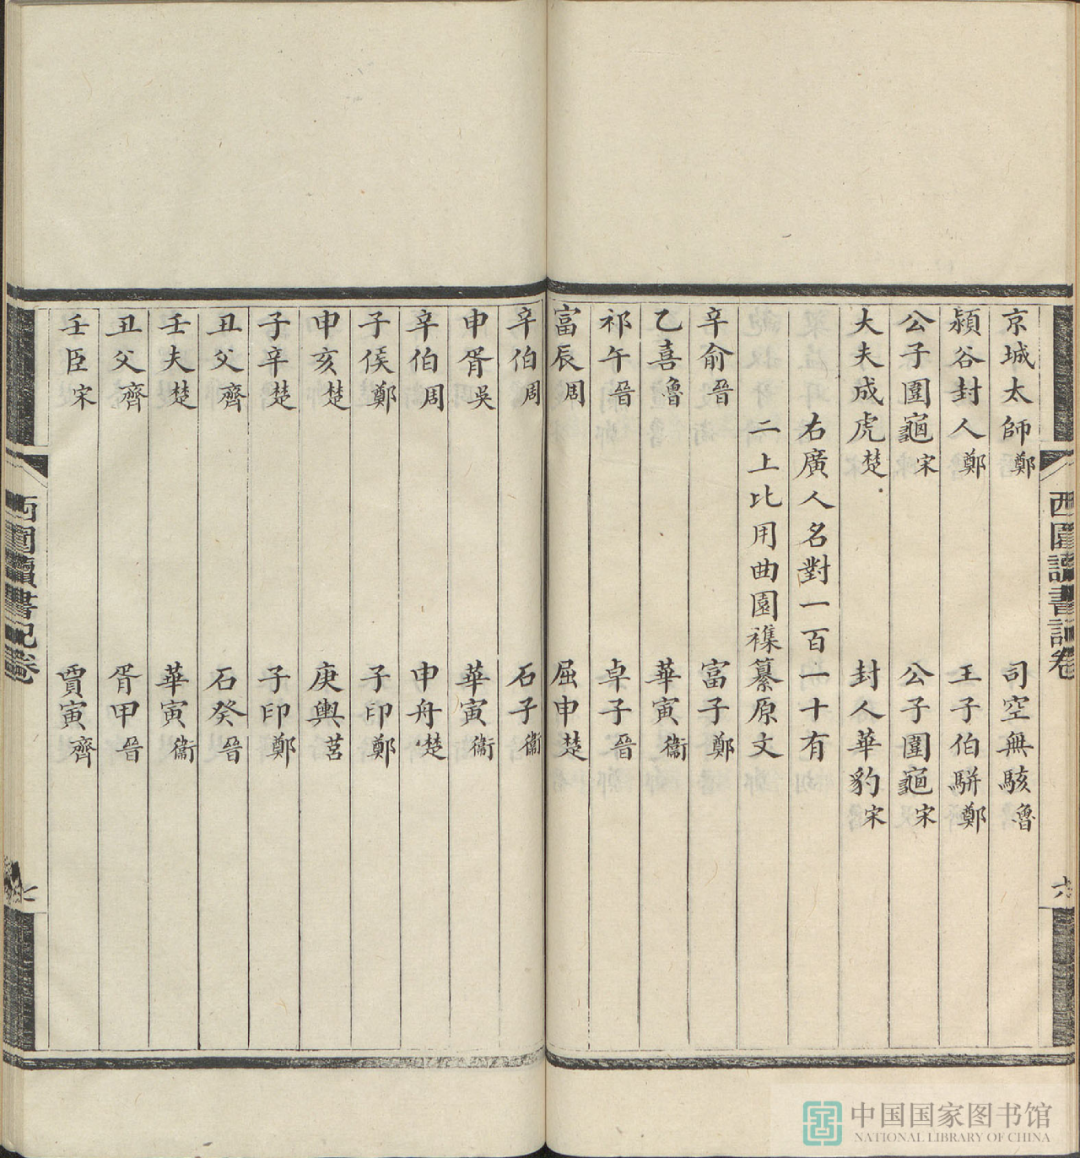 西園讀書記卷
六
京城太師鄭 司空無駭魯
潁谷封人鄭 王子伯駢鄭
公子圍龜宋 公子圍龜宋
大夫成虎楚 封人華豹宋
右廣人名對一百一十有
二上比用曲園襍纂原文
辛俞晉 富子鄭
乙喜魯 華寅衞
祁午晉 卓子晉
富辰周 屈申楚
辛伯周 石子衞
申胥吳 華寅衞
辛伯周 申舟楚
子侯鄭 子印鄭
申亥楚 庚輿莒
子辛楚 子印鄭
丑父齊 石癸晉
壬夫楚 華寅衞
丑父齊 胥甲晉
壬臣宋 賈寅齊
西園讀書記卷
七
中国国家图书馆
NATIONAL LIBRARY OF CHINA